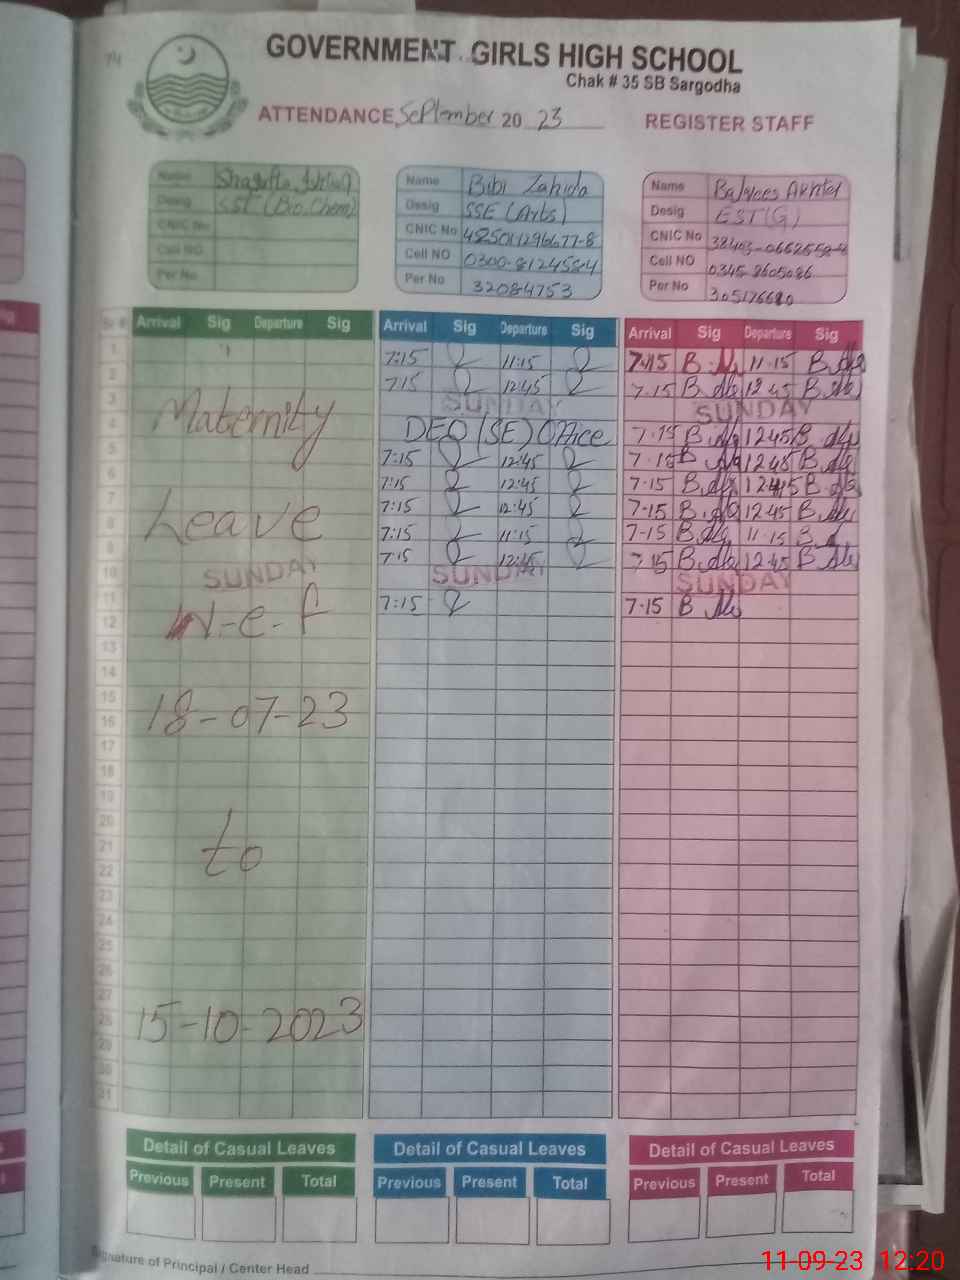 74
GOVERNMENT GIRLS HIGH SCHOOL
Chak # 35 SB Sargodha
ATTENDANCE, September 20 23 REGISTER STAFF
Name Shagufta
Desig SST (Bio.Chem)
CNIC No
Cell NO
Per No
Name Bibi Zahida
Desig SSE (Arts)
CNIC No
Cell NO
Per No 32084753
Name Akhter
Desig EST (G)
CNIC No
Cell NO
Per No
Sr # Arrival Sig Departure Sig
Arrival Sig Departure Sig
Arrival Sig Departure Sig
1 7:15 11:15 7:15 11:15
2 7:15 12:45 7:15 12:45
3 SUNDAY SUNDAY
Maternity
4 DEO (SE) Office 7:15 12:45
5 7:15 12:45 7:15 12:45
6 7:15 12:45 7:15 12:45
7 7:15 12:45 7:15 12:45
Leave
8 7:15 11:15 7:15 11:15
9 7:15 12:45 7:15 12:45
10 SUNDAY SUNDAY SUNDAY
11 7:15 7:15
W-e-f
12
13
14
15
18-07-23
16
17
18
19
20
21
to
22
23
24
25
26
27
28
15-10-2023
29
30
31
Detail of Casual Leaves
Previous Present Total
Detail of Casual Leaves
Previous Present Total
Detail of Casual Leaves
Previous Present Total
Signature of Principal / Center Head
11-09-23 12:20